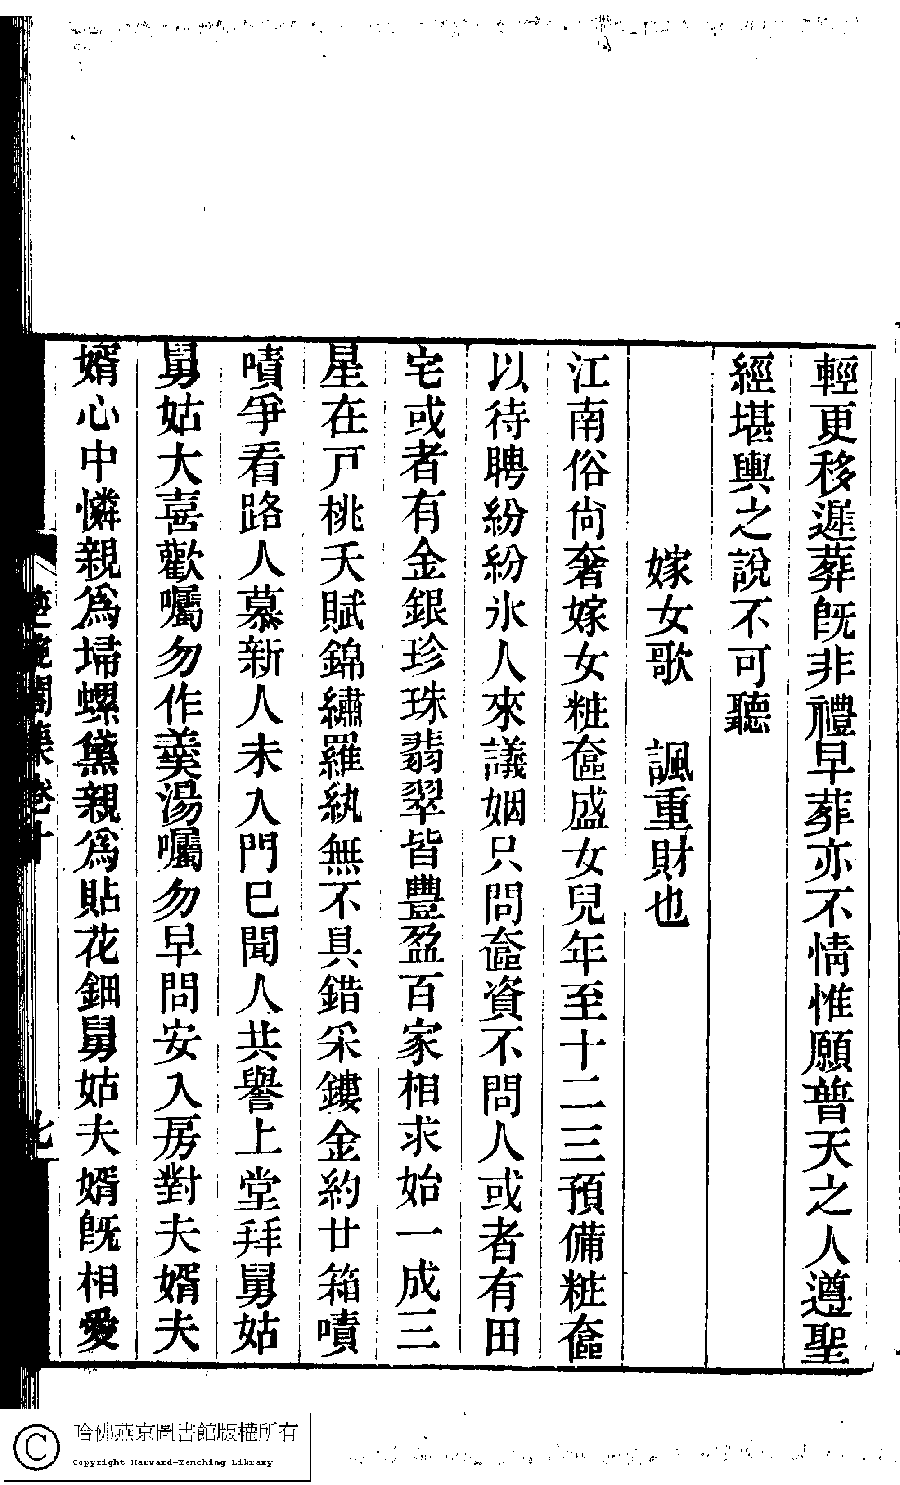 輕更移遲葬旣非禮早葬亦不情惟願普天之人遵聖
經堪輿之說不可聽
嫁女歌　諷重財也
江南俗尙奢嫁女粧奩盛女兒年至十二三預備粧奩
以待聘紛紛氷人來議姻只問奩資不問人或者有田
宅或者有金銀珍珠翡翠皆豐盈百家相求始一成三
星在戸桃夭賦錦繡羅紈無不具錯采鏤金約廿箱嘖
嘖爭看路人慕新人未入門已聞人共譽上堂拜舅姑
舅姑大喜歡囑勿作羹湯囑勿早問安入房對夫婿夫
婿心中憐親爲埽螺黛親爲貼花鈿舅姑夫婿旣相愛
哈佛燕京圖書館版權所有
Copyright Harvard-Yenching Library